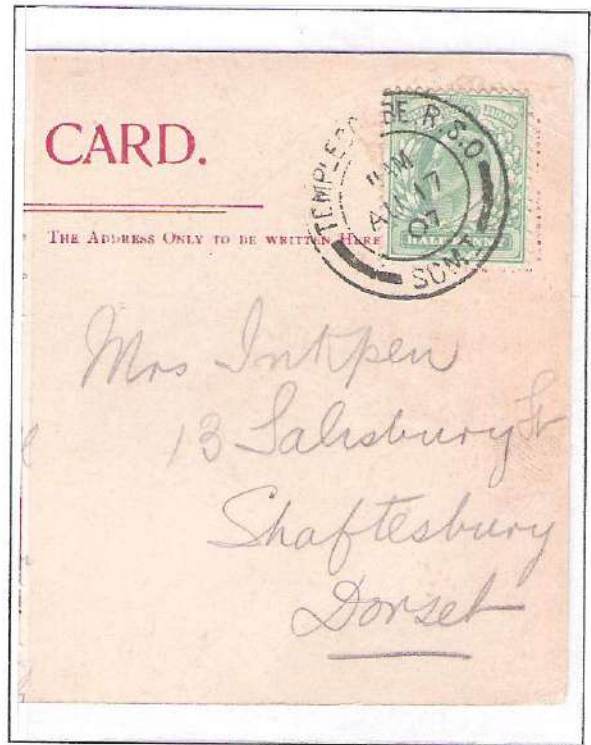 CARD.
THE ADDRESS ONLY TO BE WRITTEN HERE
TEMPLECOMBE. R.S.O
11 AM
17
07
SOMT
HALFPENNY
Mrs Inkpen
13 Salisbury St
Shaftesbury
Dorset